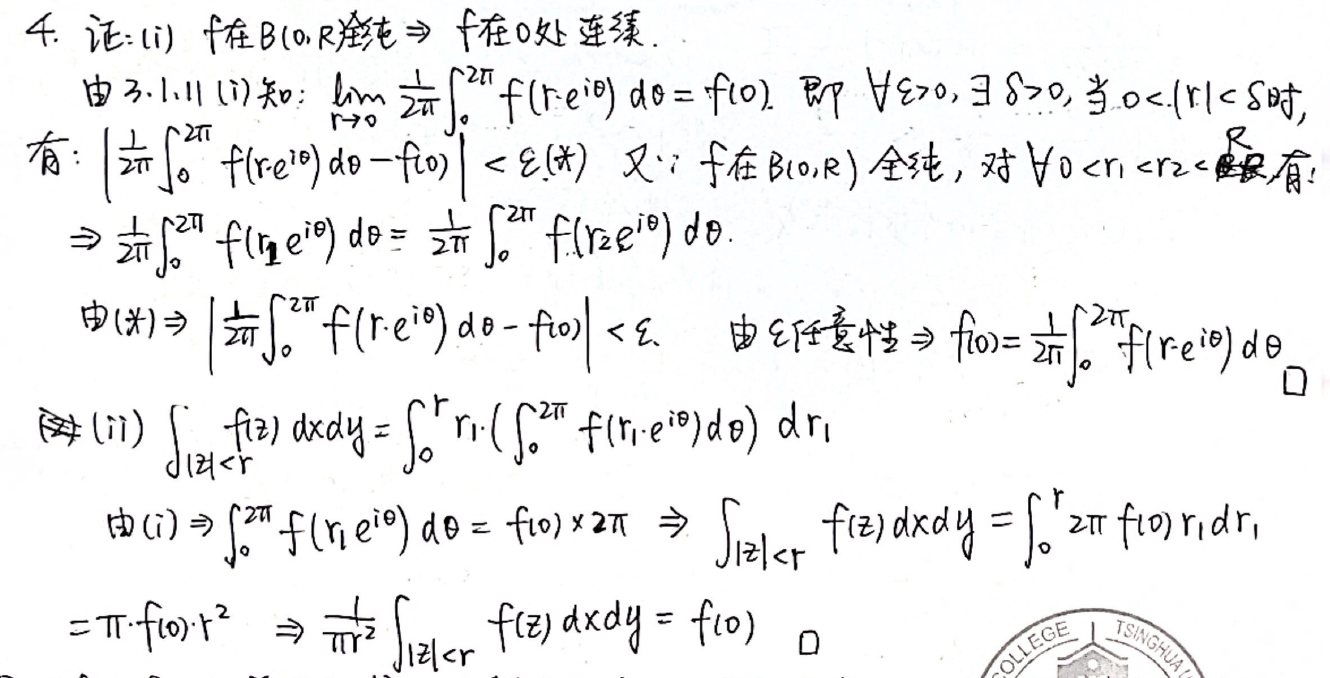 4. 证:(i) f在B(0,R)全纯 ⇒ f在0处连续.
由3.1.11(i)知: lim_{r→0} \frac{1}{2π}∫_0^{2π} f(r·e^{iθ}) dθ = f(0). 即 ∀ε>0, ∃δ>0, 当0<|r|<δ时,
有: |\frac{1}{2π}∫_0^{2π} f(r·e^{iθ}) dθ - f(0)| < ε.(*) 又∵ f在B(0,R)全纯, 对∀0<r₁<r₂<R, 有:
⇒ \frac{1}{2π}∫_0^{2π} f(r₁e^{iθ}) dθ = \frac{1}{2π}∫_0^{2π} f(r₂e^{iθ}) dθ.
由(*)⇒ |\frac{1}{2π}∫_0^{2π} f(r·e^{iθ}) dθ - f(0)| < ε. 由ε任意性 ⇒ f(0) = \frac{1}{2π}∫_0^{2π} f(r·e^{iθ}) dθ □
(ii) ∫_{|z|<r} f(z) dxdy = ∫_0^r r₁·(∫_0^{2π} f(r₁·e^{iθ}) dθ) dr₁
由(i) ⇒ ∫_0^{2π} f(r₁e^{iθ}) dθ = f(0)×2π ⇒ ∫_{|z|<r} f(z) dxdy = ∫_0^r 2π f(0) r₁ dr₁
= π·f(0)·r² ⇒ \frac{1}{πr²}∫_{|z|<r} f(z) dxdy = f(0) □
COLLEGE | TSINGHUA